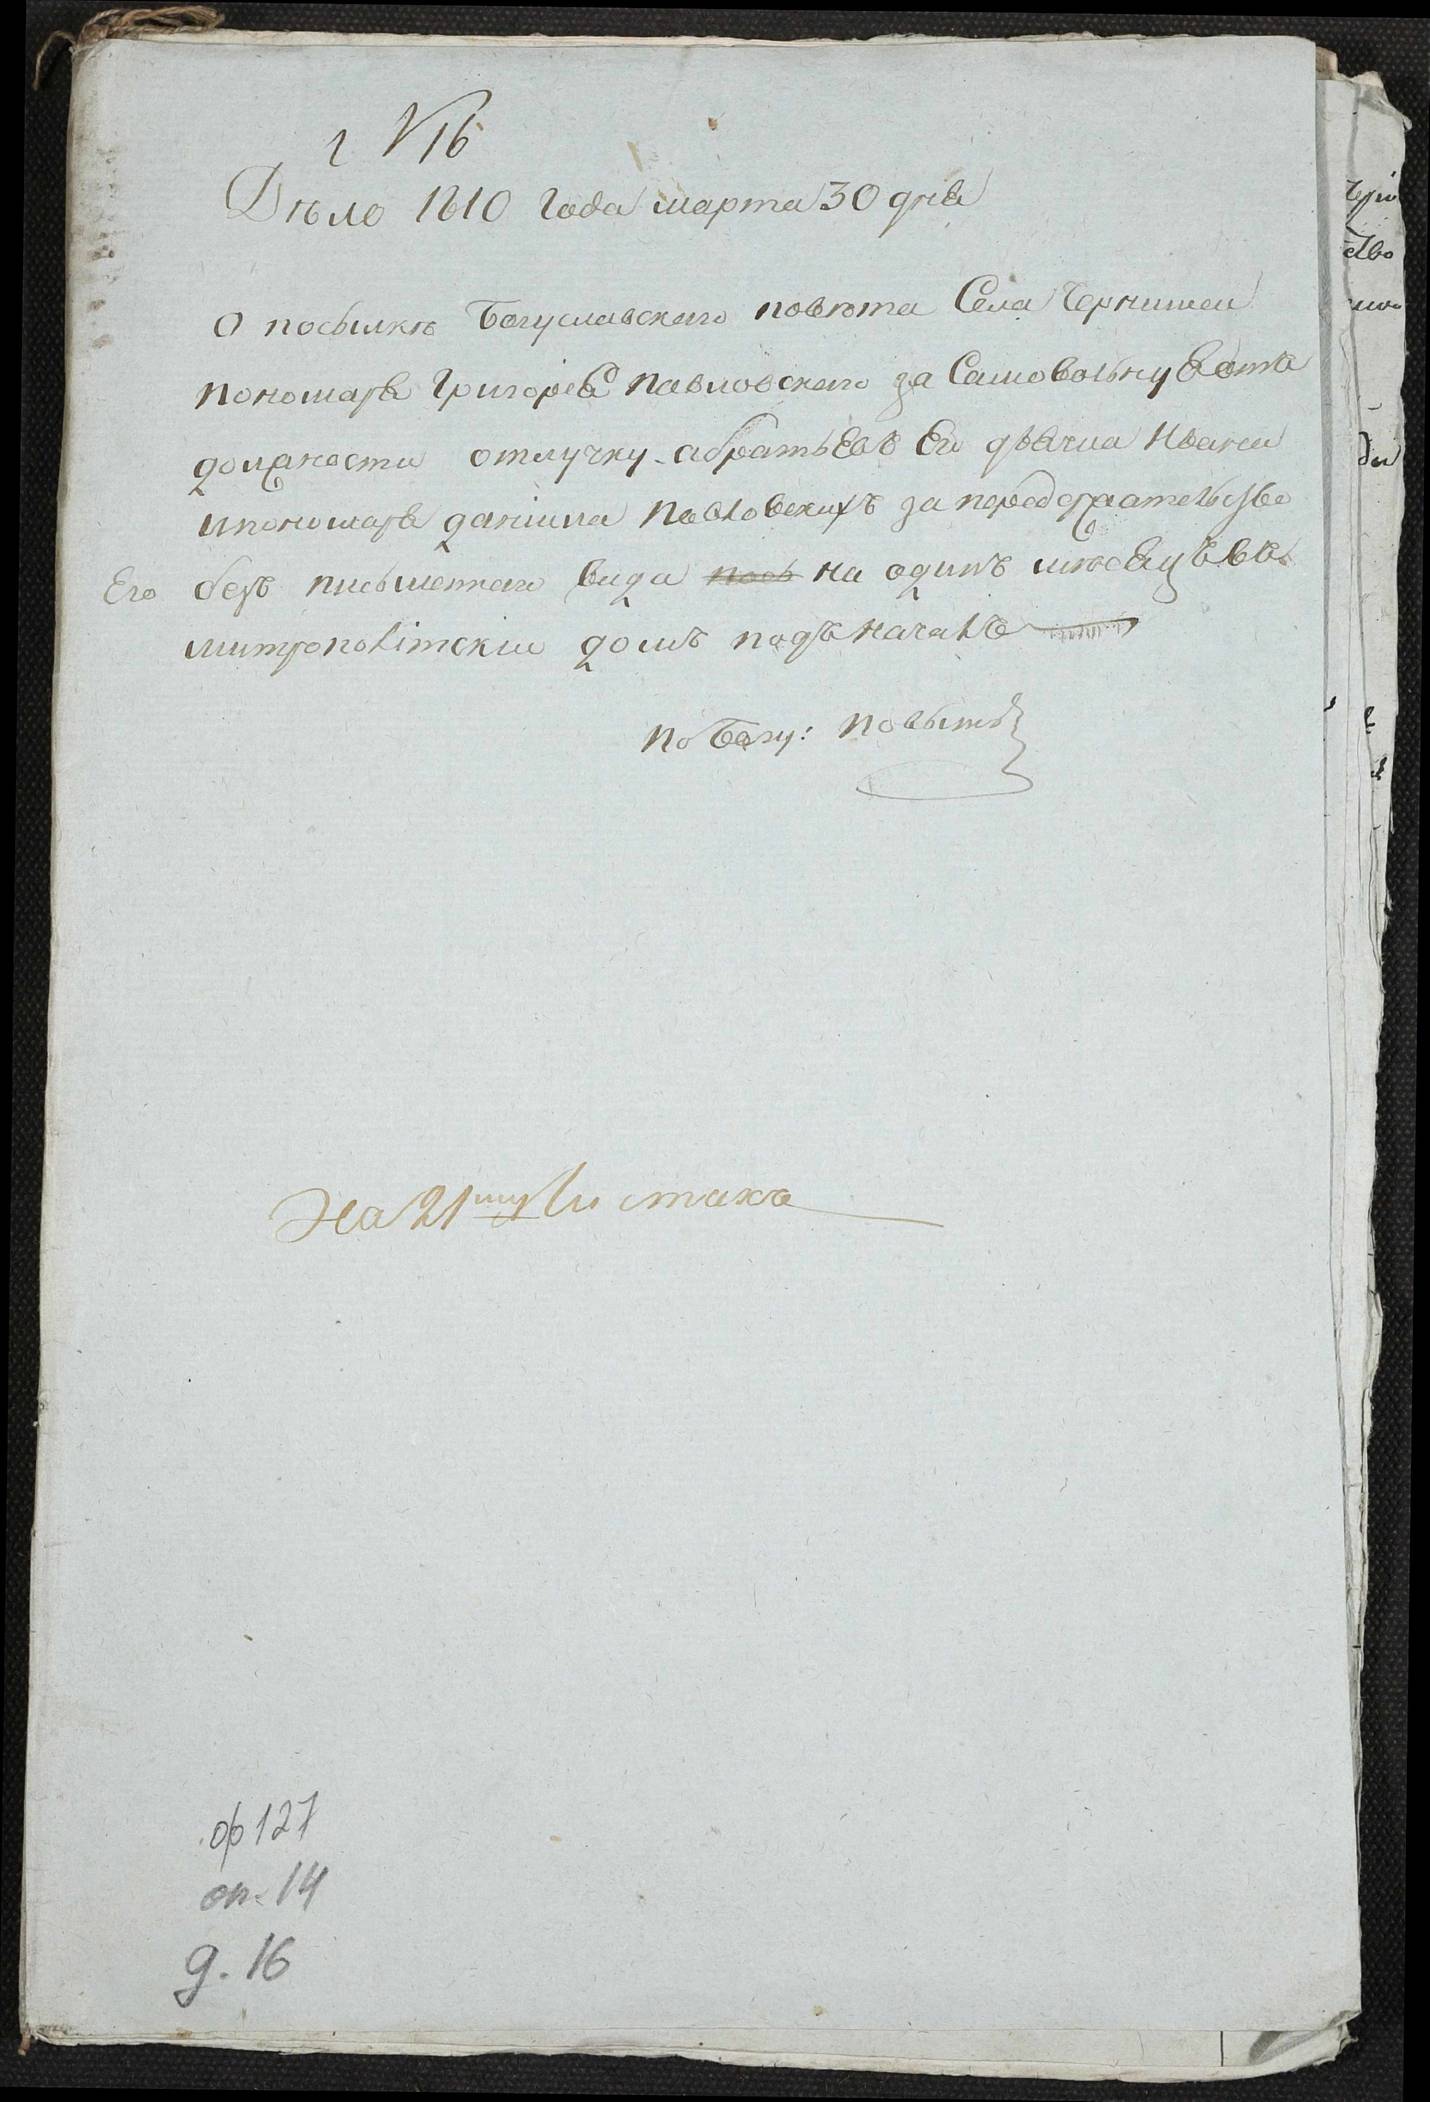 № 16
Дѣло 1810 года марта 30 дня
О посылкѣ Богуславского повѣта Села Чернишей
пономаря Григорея Павловского за Самовольную отъ
должности отлучку, а братьевъ Его дьячка Ивана
и пономаря данiила Павловскихъ за передержательство
Его безъ письменного вида на одинъ мѣсяцъ въ
митрополiтскiй домъ подъ началъ
по Богу: повытью
На 21 листахъ
ф 127
оп. 14
д. 16